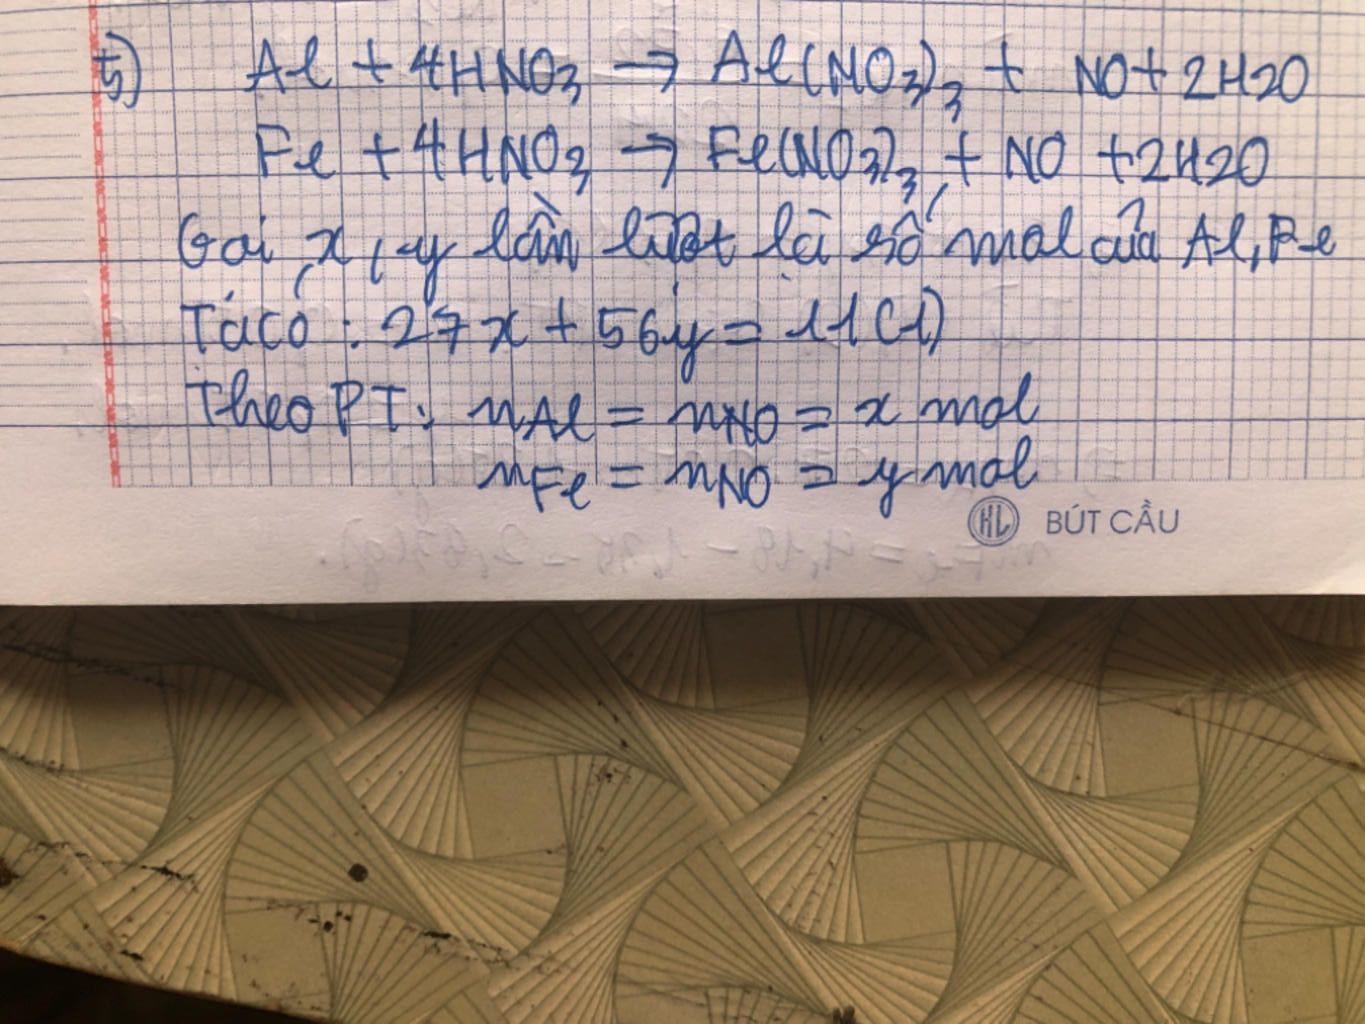 5) Al + 4HNO3 → Al(NO3)3 + NO + 2H2O
Fe + 4HNO3 → Fe(NO3)3 + NO + 2H2O
Gọi x, y lần lượt là số mol của Al, Fe
Ta có: 27x + 56y = 11 (1)
Theo PT: nAl = nNO = x mol
nFe = nNO = y mol
KL BÚT CẦU